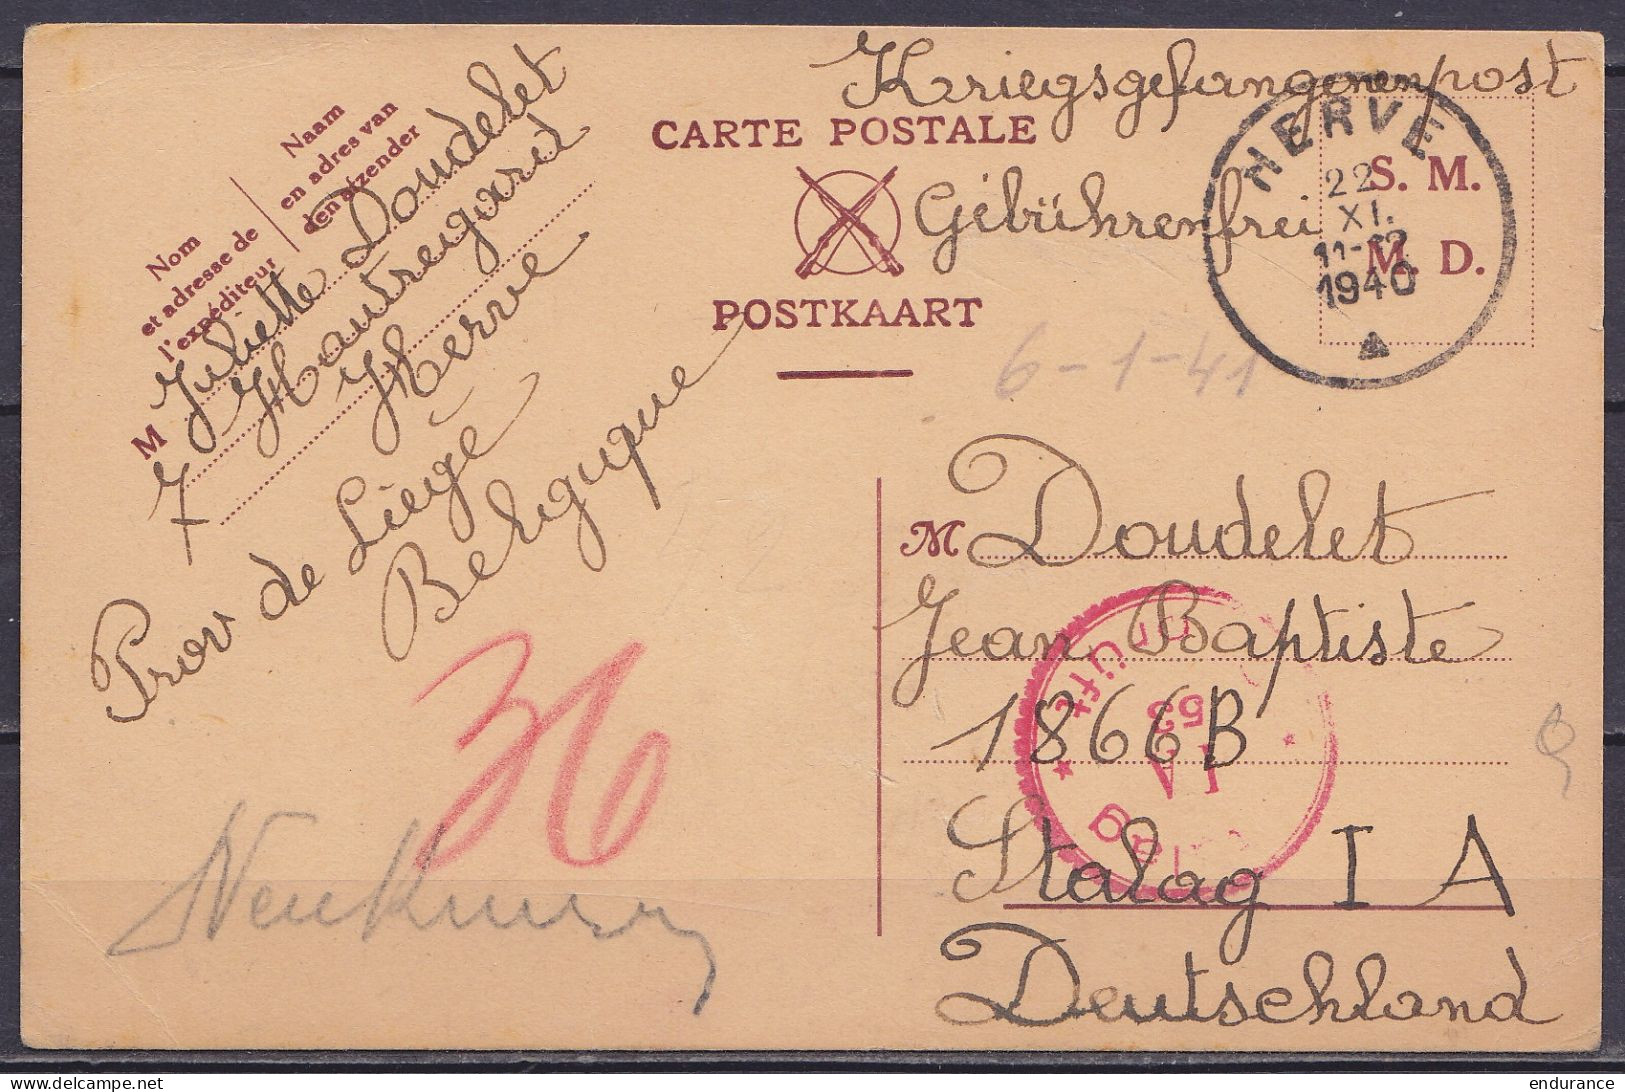 Kriegsgefangenenpost
CARTE POSTALE
Gebührenfrei
POSTKAART
S. M.
M. D.
HERVE
22
XI.
11-12
1940
6-1-41
Naam
en adres van
den afzender
Nom
et adresse de
l'expéditeur
M Juliette Doudelet
7 Hautregard
Herve
Prov de Liége
Belgique
M Doudelet
Jean Baptiste
1866B
Stalag I A
Deutschland
Geprüft
53
I A
Stalag
36
delcampe.net
endurance